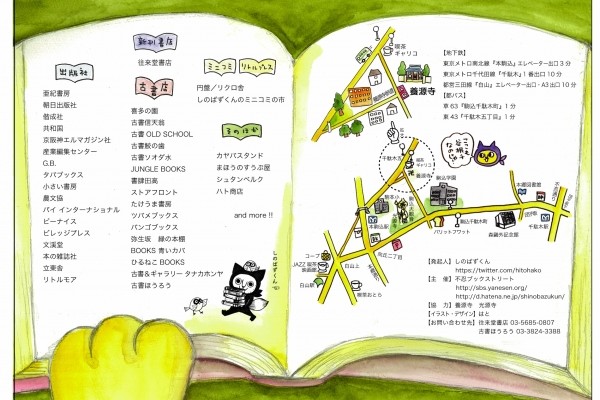 出版社
亜紀書房
朝日出版社
偕成社
共和国
京阪神エルマガジン社
産業編集センター
G.B.
タバブックス
小さい書房
農文協
パイ インターナショナル
ビーナイス
ビレッジプレス
文溪堂
本の雑誌社
立東舎
リトルモア
新刊書店
往来堂書店
古書店
喜多の園
古書信天翁
古書 OLD SCHOOL
古書鮫の歯
古書ソオダ水
JUNGLE BOOKS
書肆田高
ストアフロント
たけうま書房
ツバメブックス
バンゴブックス
弥生坂 緑の本棚
BOOKS 青いカバ
ひるねこ BOOKS
古書&ギャラリー タナカホンヤ
古書ほうろう
ミニコミ リトルプレス
円盤/リクロ舎
しのばずくんのミニコミの市
そのほか
カヤバスタンド
まほうのすうぷ屋
シュタンベルク
ハト商店
and more !!
しのばずくん
喫茶
ギャリコ
養源寺
千駄木五
喫茶
ギャリコ
養源寺
駒込学園
本駒込駅
向丘二丁目
駒込千駄木町
パリットフワット
森鷗外記念館
本郷図書館
往来堂
千駄木駅
不忍通り
コープ
JAZZ 喫茶
映画館
白山上
白山駅
喫茶おとら
【地下鉄】
東京メトロ南北線「本駒込」エレベーター出口3分
東京メトロ千代田線「千駄木」1番出口10分
都営三田線「白山」エレベーター出口・A3出口10分
【都バス】
草63「駒込千駄木町」1分
東43「千駄木五丁目」1分
【発起人】しのばずくん
https://twitter.com/hitohako
【主 催】不忍ブックストリート
http://sbs.yanesen.org/
http://d.hatena.ne.jp/shinobazukun/
【協 力】養源寺 光源寺
【イラスト・デザイン】はと
【お問い合わせ先】往来堂書店 03-5685-0807
古書ほうろう 03-3824-3388